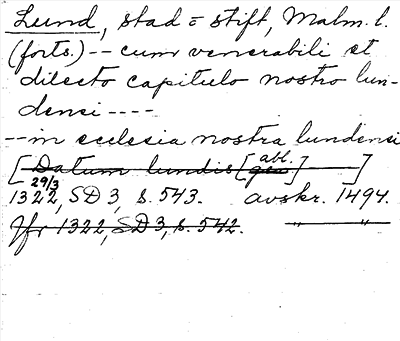 Lund, stad = stift, Malm. l.
(forts.) -- cum venerabili et
dilecto capitulo nostro lun-
densi ----
--in ecclesia nostra lundensi
[Datum lundis [abl.] ]
29/3
1322, SD 3, s. 543. avskr. 1494.
Jfr 1322, SD 3, s. 542. —"—"—